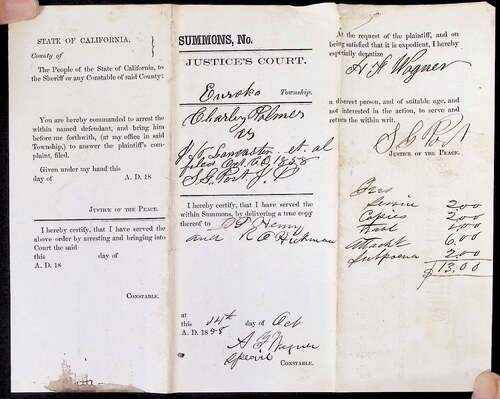 STATE OF CALIFORNIA,
County of
The People of the State of California, to
the Sheriff or any Constable of said County:
You are hereby commanded to arrest the
within named defendant, and bring him
before me forthwith, (at my office in said
Township,) to answer the plaintiff's com-
plaint, filed.
Given under my hand this
day of A. D. 18
JUSTICE OF THE PEACE.
I hereby certify, that I have served the
above order by arresting and bringing into
Court the said
this day of
A. D. 18
CONSTABLE.
SUMMONS, No.
JUSTICE'S COURT.
Eureka Township.
Charley Palmer
vs
Lancaster et al
filed Oct 1858
S G Post J. P.
I hereby certify, that I have served the
within Summons, by delivering a true copy
thereof to O P Henry
and R O Hickman
at
this 14th day of Oct
A. D. 1858
A F Wagner
Special CONSTABLE.
At the request of the plaintiff, and on
being satisfied that it is expedient, I hereby
especially deputize
A F Wagner
a discreet person, and of suitable age, and
not interested in the action, to serve and
return the within writ.
S G Post
JUSTICE OF THE PEACE.
Fees
Service 2.00
Copies 2.00
1.00
Attacht 6.00
Subpoena 2.00
$13.00